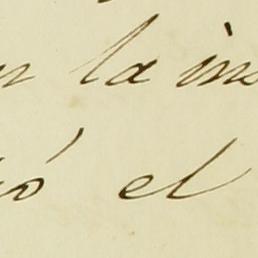 la ins
ó el